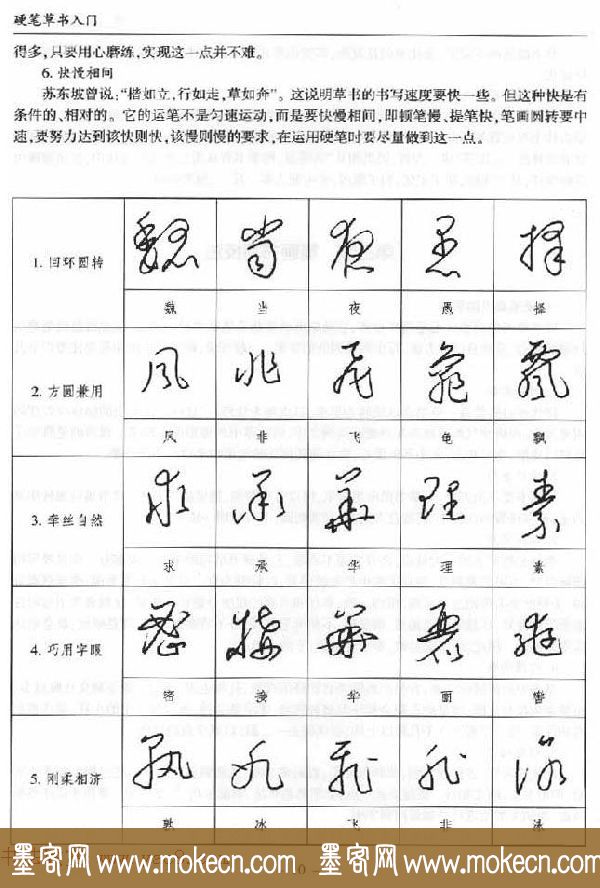 硬笔草书入门
得多,只要用心磨练,实现这一点并不难。
6. 快慢相间
苏东坡曾说:“楷如立,行如走,草如奔”。这说明草书的书写速度要快一些。但这种快是有
条件的、相对的。它的运笔不是匀速运动,而是要快慢相间,即顿笔慢、提笔快,笔画圆转要中
速,要努力达到该快则快,该慢则慢的要求,在运用硬笔时要尽量做到这一点。
1. 回环圆转
魏 当 夜 愚 择
2. 方圆兼用
风 非 飞 龟 飘
3. 牵丝自然
求 承 华 理 素
4. 巧用字眼
华 丽
5. 刚柔相济
冰 飞 非 泳
墨客网 www.mokecn.com 墨客网 www.mokecn.com